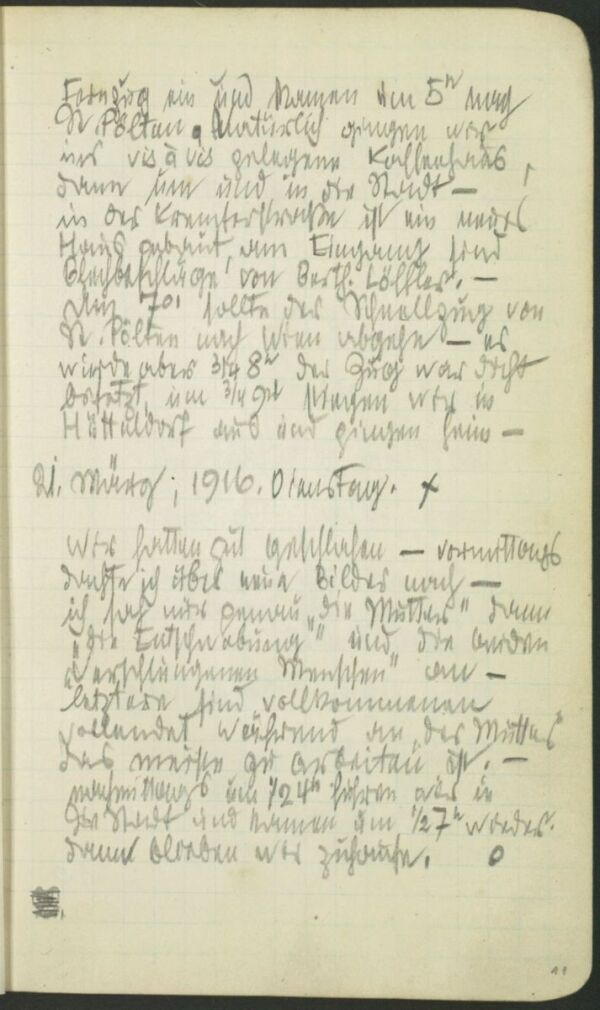 Fernzug ein und kamen um 5h nach
St. Pölten. Natürlich gingen wir
ins vis à vis gelegene Kaffeehaus,
dann um und in die Stadt —
in der Kremserstraße ist ein neues
Haus gebaut, am Eingang sind
Blechbeschläge von Berth. Löffler. —
Um 701 sollte der Schnellzug von
St. Pölten nach Wien abgehe — es
wurde aber 3/4 8h der Zug war dicht
besetzt, um 3/4 9h stiegen wir in
Hütteldorf aus und gingen heim —
21. März, 1916. Dienstag. x
Wir hatten gut geschlafen — vormittags
dachte ich über neue Bilder nach —
ich sah mir genau „die Mutter" dann
„die Entschwebung" und „die beiden
verschlungenen Menschen" an —
letztere sind vollkommenen
vollendet während an „der Mutter"
das meiste zu arbeiten ist. —
nachmittags um 1/2 4h fuhren wir in
die Stadt und kamen um 1/2 7h wieder.
dann blieben wir zuhause. o